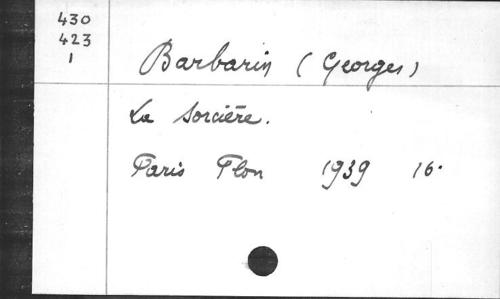 430
423
1
Barbarin (Georges)
La Sorcière.
Paris Plon 1939 16.